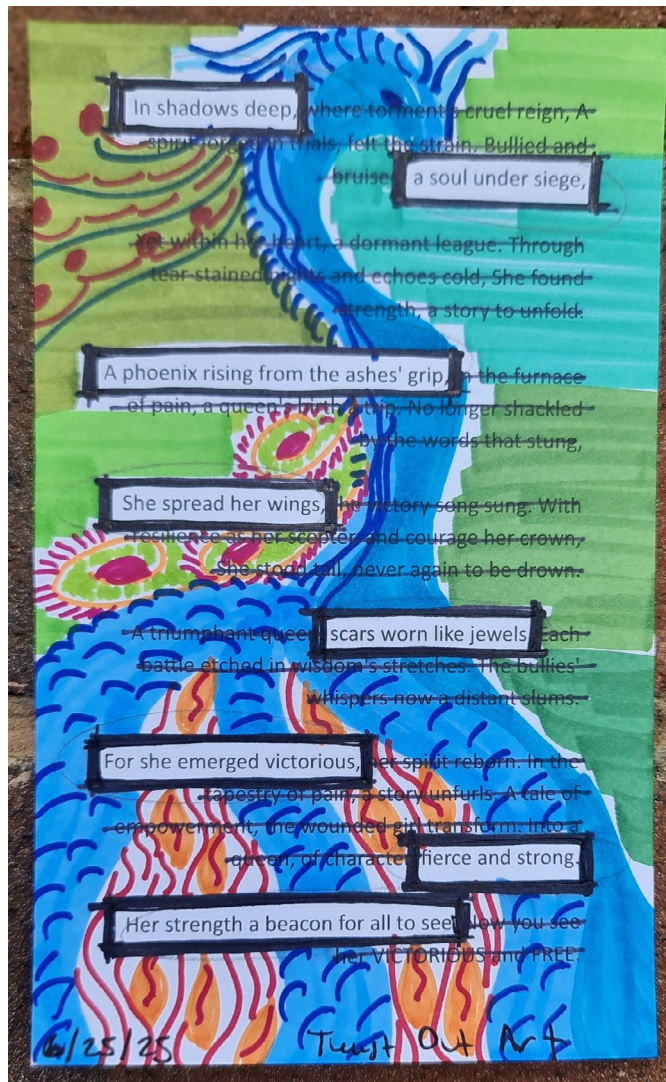 In shadows deep, where torment's cruel reign, A
spirit forged in trials, felt the strain. Bullied and
bruised a soul under siege,
Yet within her heart, a dormant league. Through
tear-stained nights and echoes cold, She found
strength, a story to unfold.
A phoenix rising from the ashes' grip, In the furnace
of pain, a queen's birth a trip. No longer shackled
by the words that stung,
She spread her wings, the victory song sung. With
resilience as her scepter and courage her crown,
She stood tall, never again to be drown.
A triumphant queen scars worn like jewels Each
battle etched in wisdom's stretches. The bullies'
whispers now a distant slums.
For she emerged victorious, her spirit reborn. In the
tapestry of pain, a story unfurls, A tale of
empowerment, the wounded girl transform. Into a
queen, of character fierce and strong.
Her strength a beacon for all to see Now you see
her VICTORIOUS and FREE.
6/25/25 Twist Out Art